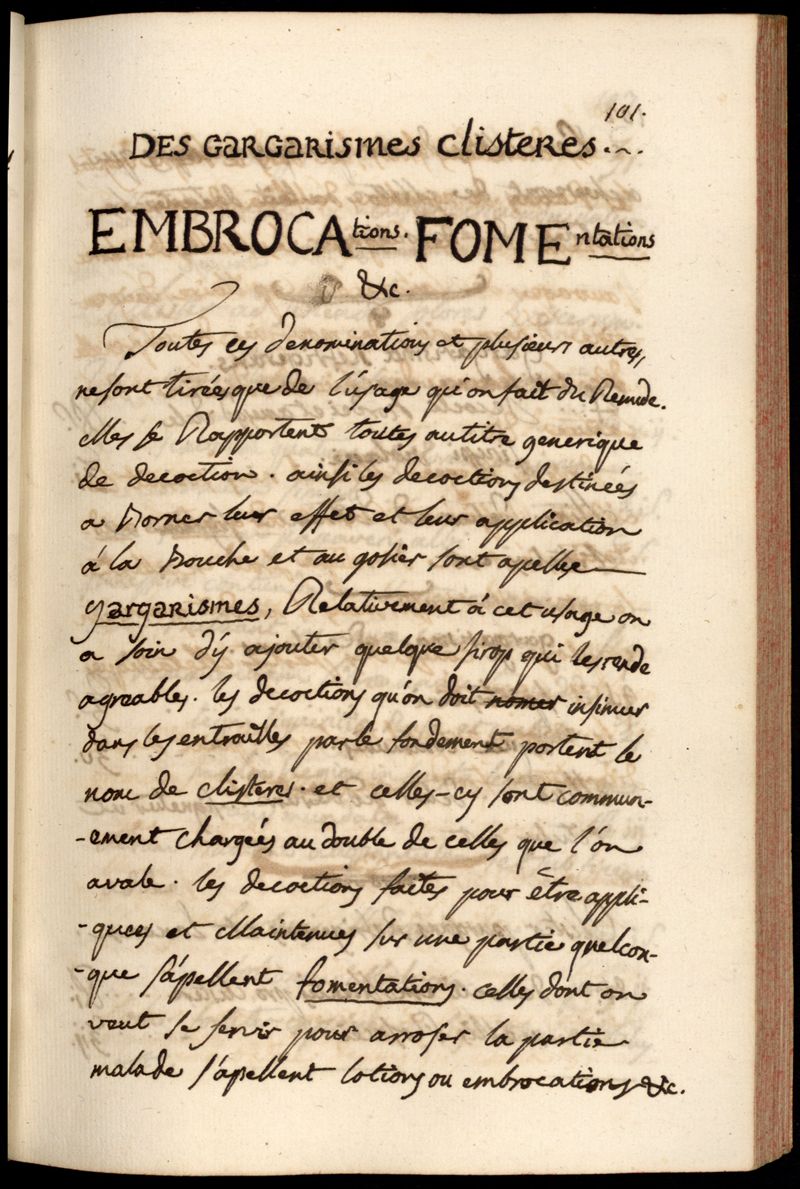 101.
DES GARGARISMES CLISTERES.~.
EMBROCAtions. FOMEntations
&c.
Toutes ces denominations et plusieurs autres,
ne sont tirées que de l'úsage qu'on fait du Remede.
elles se Rapportent toutes au titre generique
de decoction. ainsi les decoctions destinées
a Borner leur effet et leur application
á la Bouche et au gosier sont apellée
gargarismes, Relativement á cet usage on
a soin d'y ajouter quelque sirop qui les rende
agreables. les decoctions qu'on doit nomer insinuer
dans les entrailles par le fondement portent le
nom de clisteres. et celles-cy sont commun-
-ement chargées au double de celles que l'on
avale. les decoctions faites pour être appli-
-quees et Maintenues sur une partie quelcon-
-que s'apellent fomentations. celles dont on
veut se servir pour arroser la partie
malade s'apellent lotions ou embrocations &c.